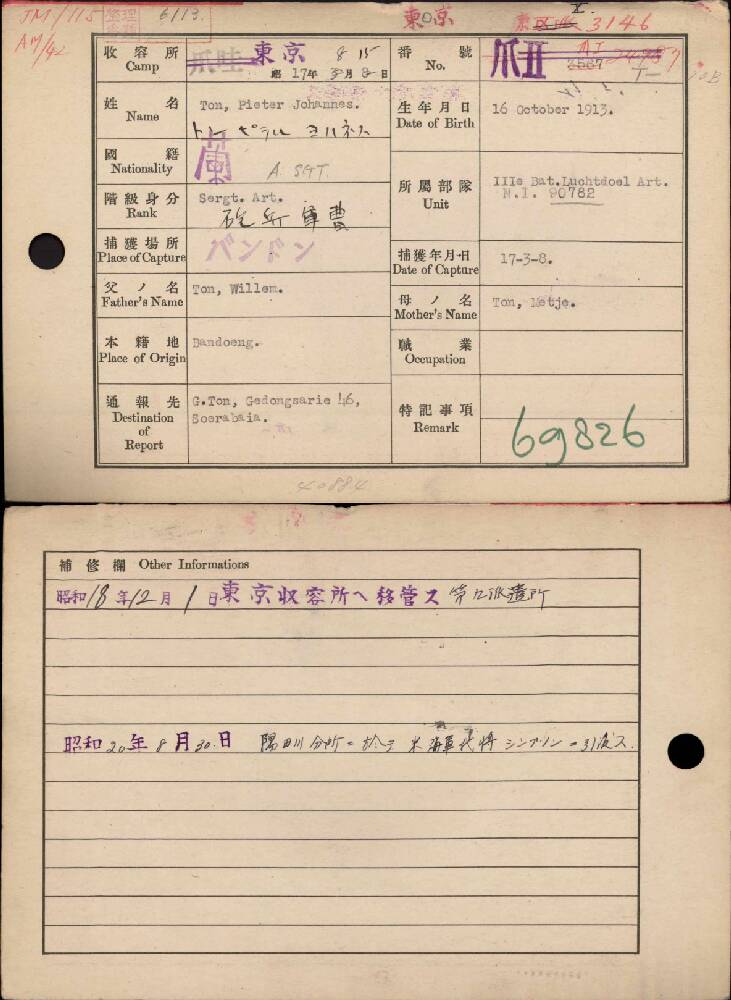 JM/115 整理 6113. 東京 3146
AM/42
收容所 Camp 爪哇 東京 8 15
昭 17年 3月 8日
番號 No. 爪Ⅱ
姓名 Name Ton, Pieter Johannes.
ヨハネス
生年月日 Date of Birth 16 October 1913.
國籍 Nationality 蘭 A. SGT.
階級身分 Rank Sergt. Art.
砲兵軍曹
所屬部隊 Unit IIIe Bat.Luchtdoel Art.
N.I. 90782
捕獲場所 Place of Capture バンドン
捕獲年月日 Date of Capture 17-3-8.
父ノ名 Father's Name Ton, Willem.
母ノ名 Mother's Name Ton, Metje.
本籍地 Place of Origin Bandoeng.
職業 Occupation
通報先 Destination of Report G.Ton, Gedongsarie 46,
Soerabaia.
特記事項 Remark 69826
40884
補修欄 Other Informations
昭和18年12月1日東京収容所ヘ移管ス
昭和20年8月30日 隅田川分所ニ於テ米海軍代將シンプソンニ引渡ス.